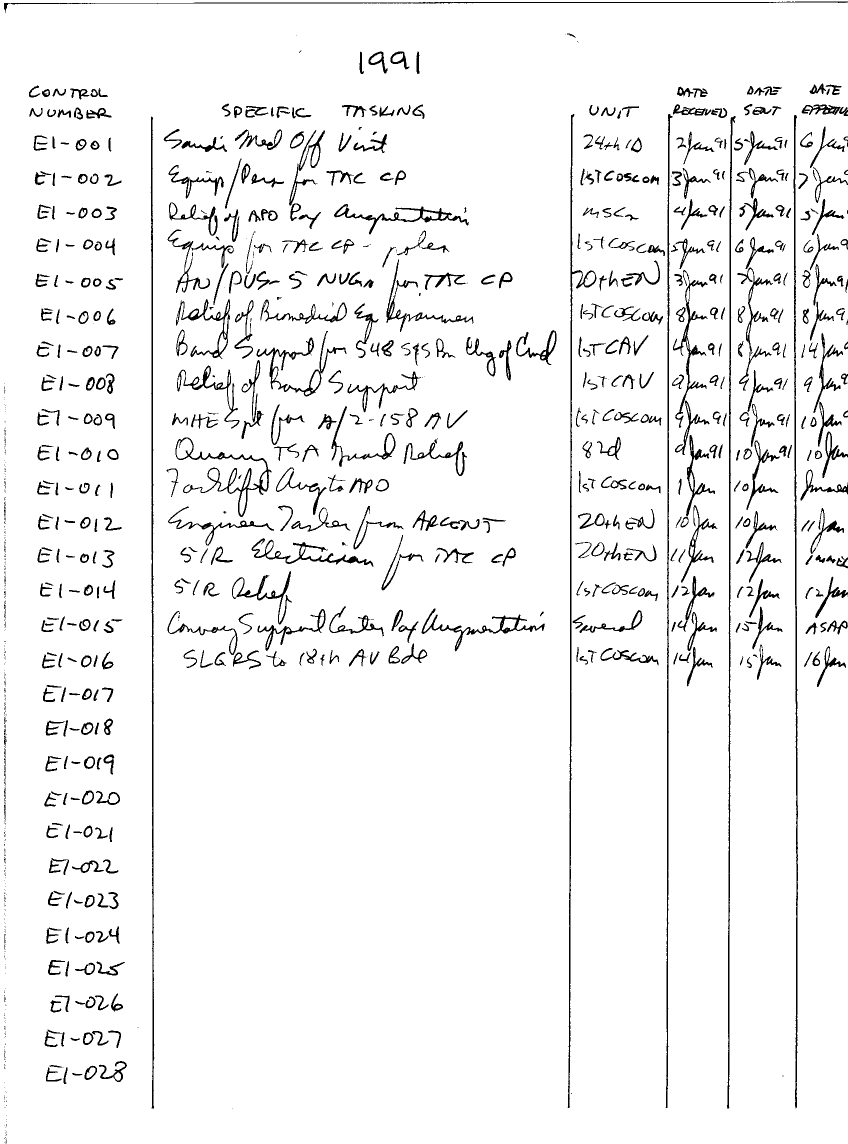 1991
CONTROL NUMBER SPECIFIC TASKING UNIT DATE RECEIVED DATE SENT DATE EFFECTIVE
E1-001 Saudi Med Off Visit 24th ID 2 Jan 91 5 Jan 91 6 Jan 9
E1-002 Equip/Pers for TAC CP 1ST COSCOM 3 Jan 91 5 Jan 91 7 Jan
E1-003 Relief of APO Pax Augmentation 4 Jan 91 5 Jan 91 5 Jan
E1-004 Equip for TAC CP - poles 1ST COSCOM 5 Jan 91 6 Jan 91 6 Jan 9
E1-005 AN/PVS-5 NVGs for TAC CP 20th EN 3 Jan 91 7 Jan 91 8 Jan 9
E1-006 Relief of Biomedical Eq Repairmen 1ST COSCOM 8 Jan 91 8 Jan 91 8 Jan 9
E1-007 Band Support for 548 S&S Bn Chg of Cmd 1ST CAV 4 Jan 91 8 Jan 91 14 Jan
E1-008 Relief of Band Support 1ST CAV 9 Jan 91 9 Jan 91 9 Jan
E1-009 MHE Spt for A/2-158 AV 1ST COSCOM 9 Jan 91 9 Jan 91 10 Jan
E1-010 Quarry TSA Guard Relief 82d 9 Jan 91 10 Jan 91 10 Jan
E1-011 Forklift Aug to APO 1ST COSCOM 1 Jan 10 Jan Immed
E1-012 Engineer Tasker from ARCENT 20th EN 10 Jan 10 Jan 11 Jan
E1-013 51R Electrician for TAC CP 20th EN 11 Jan 12 Jan Immed
E1-014 51R Relief 1ST COSCOM 12 Jan 12 Jan 12 Jan
E1-015 Convoy Support Center Pax Augmentation Several 14 Jan 15 Jan ASAP
E1-016 SLGRS to 18th AV Bde 1ST COSCOM 14 Jan 15 Jan 16 Jan
E1-017
E1-018
E1-019
E1-020
E1-021
E1-022
E1-023
E1-024
E1-025
E1-026
E1-027
E1-028